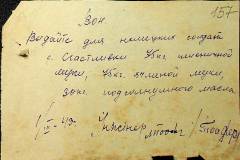 157
Зон.
Выдайте для немецких солдат
с. Счастливки 75 кг. пшеничной
муки, 75 кг. ячмной муки,
30 кг. подсолнушного масла
1/III-42.